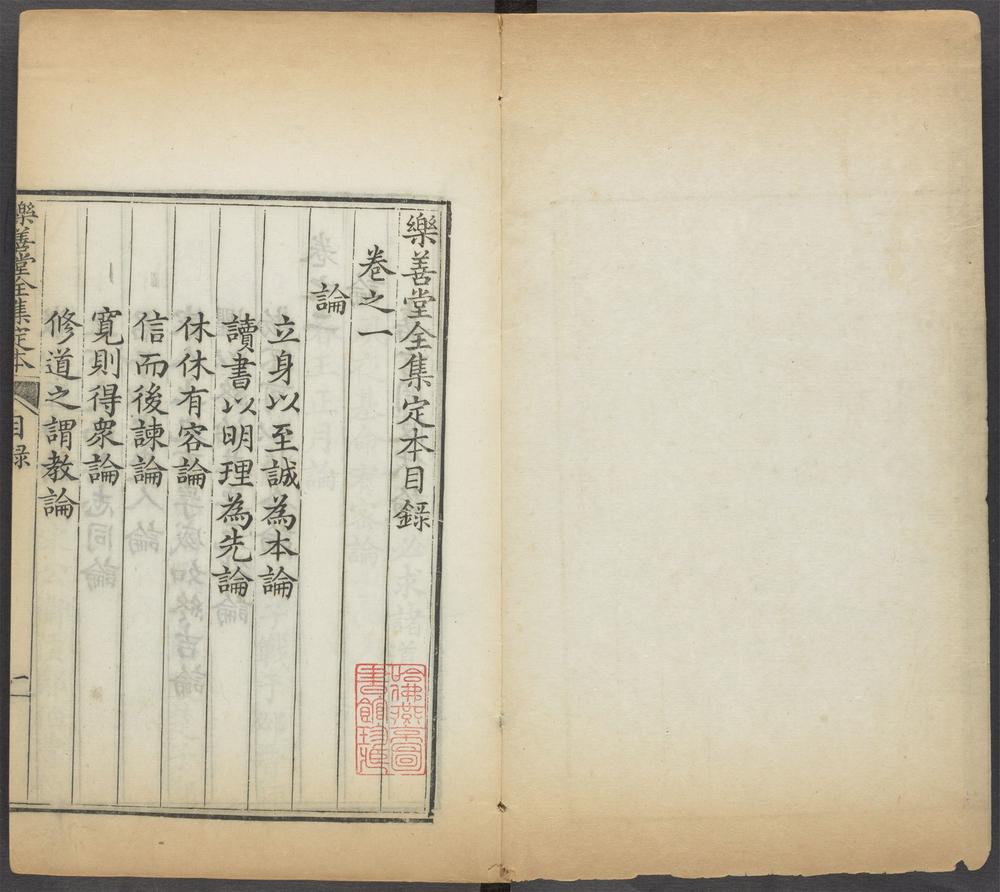 樂善堂全集定本目錄
卷之一
論
立身以至誠為本論
讀書以明理為先論
休休有容論
信而後諫論
寬則得衆論
修道之謂教論
樂善堂全集定本
目錄
一
哈佛燕京圖
書館珍藏